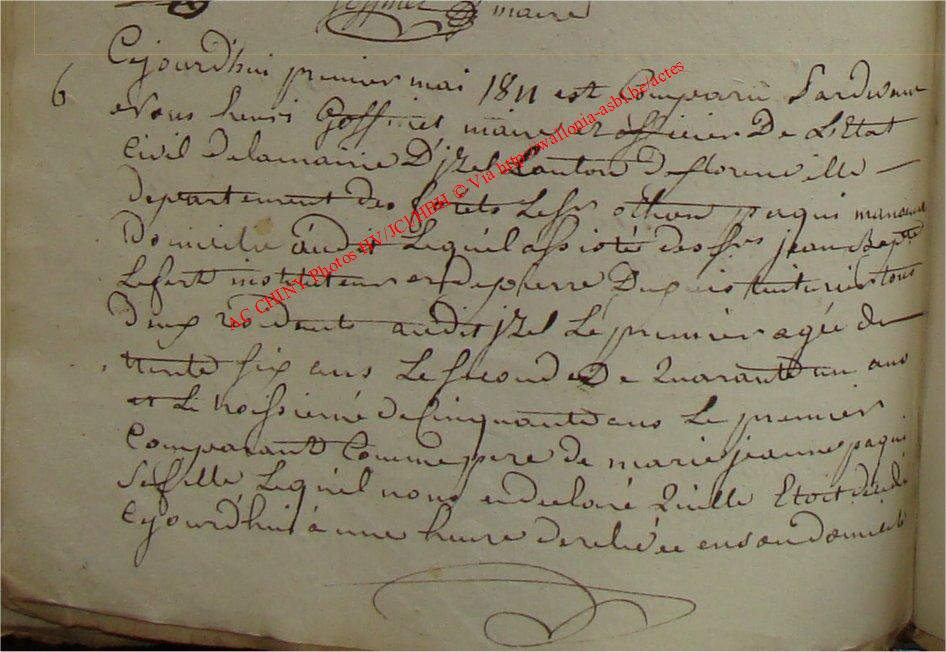 maire
6
Cejourd'hui premier mai 1811 est Comparu Pardevant
nous henri Goffinet maire et officier De L'Etat
Civil Delamairie D'jzel Canton De florenville
departement des forets Le Sr othon paqui manœuvre
Domicilié audit Lequel assisté des Srs jean Bapte
Lefort instituteur et de pierre Dupuis tous
deux residents audit jzel Le premier agée de
trente six ans Le second De Quarante un ans
et Le troissieme de Cinquante ans Le premier
Comparant Comme pere de marie jeanne paqui
Sa fille Lequel nous en declaré Qu'elle Etoit décédé
Cejourd'hui à une heure de relevée en son Domicile
AC CHINY Photos HV/JCJ/HBH © Via http://wallonia-asbl.be/actes